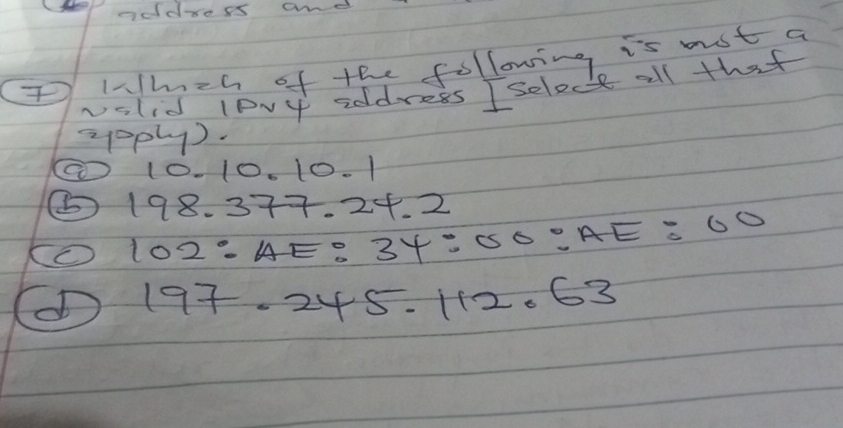 address and
⑦ Which of the following is not a
valid IPv4 address [Select all that
apply).
ⓐ 10.10.10.1
ⓑ 198.377.24.2
ⓒ 102:AE:34:00:AE:00
ⓓ 197.245.112.63